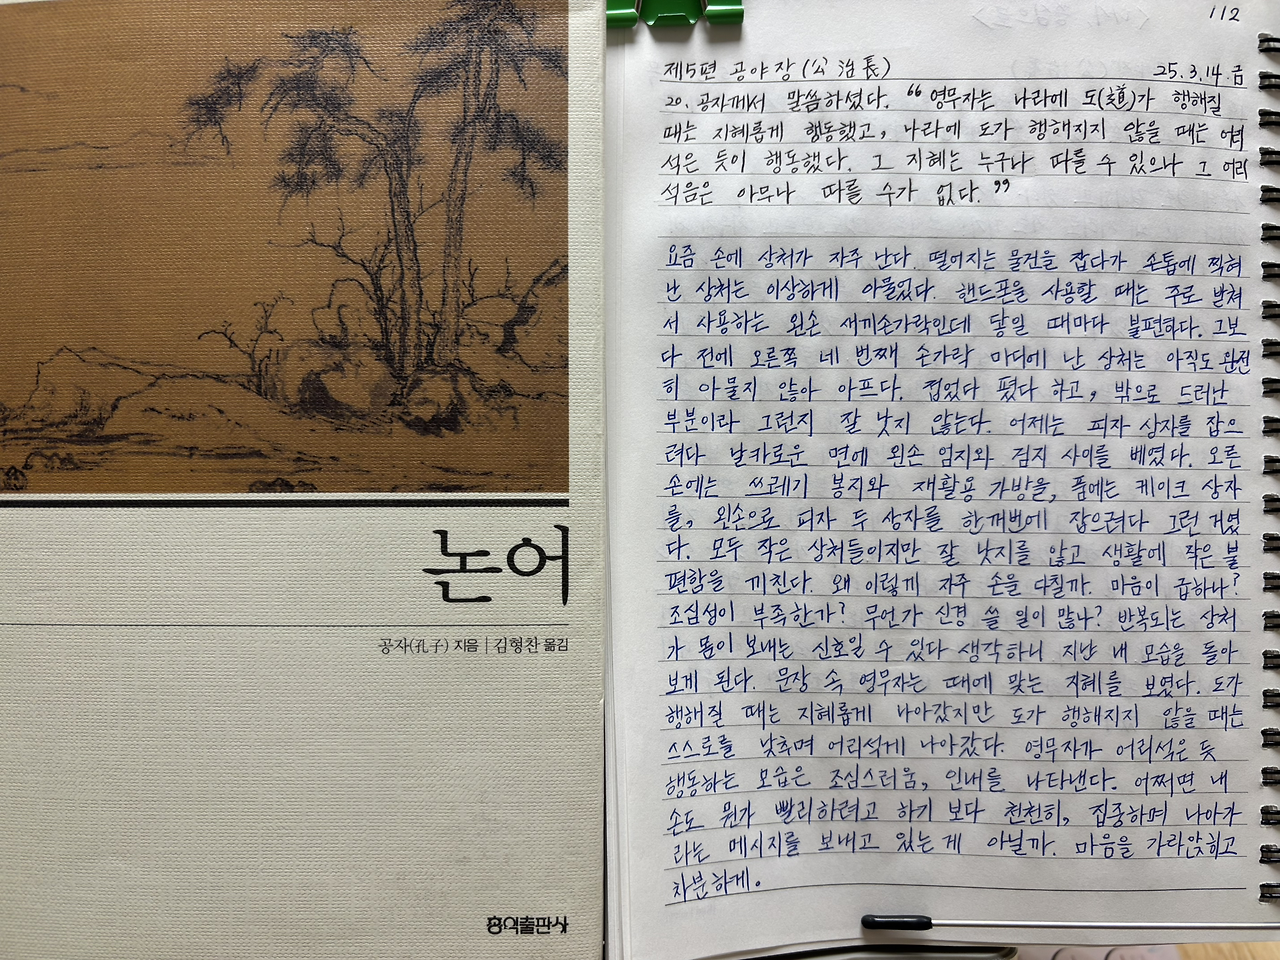 논어
공자(孔子) 지음 | 김형찬 옮김
홍익출판사
112
제5편 공야장(公冶長) 25.3.14.금
20. 공자께서 말씀하셨다. "영무자는 나라에 도(道)가 행해질
때는 지혜롭게 행동했고, 나라에 도가 행해지지 않을 때는 어리
석은 듯이 행동했다. 그 지혜는 누구나 따를 수 있으나 그 어리
석음은 아무나 따를 수가 없다."
요즘 손에 상처가 자주 난다. 떨어지는 물건을 잡다가 손톱에 찍혀
난 상처는 이상하게 아물었다. 핸드폰을 사용할 때는 주로 받쳐
서 사용하는 왼손 새끼손가락인데 닿일 때마다 불편하다. 그보
다 전에 오른쪽 네 번째 손가락 마디에 난 상처는 아직도 완전
히 아물지 않아 아프다. 접었다 폈다 하고, 밖으로 드러난
부분이라 그런지 잘 낫지 않는다. 어제는 피자 상자를 잡으
려다 날카로운 면에 왼손 엄지와 검지 사이를 베였다. 오른
손에는 쓰레기 봉지와 재활용 가방을, 품에는 케이크 상자
를, 왼손으로 피자 두 상자를 한꺼번에 잡으려다 그런 거였
다. 모두 작은 상처들이지만 잘 낫지를 않고 생활에 작은 불
편함을 끼친다. 왜 이렇게 자주 손을 다칠까. 마음이 급하나?
조심성이 부족한가? 무언가 신경 쓸 일이 많나? 반복되는 상처
가 몸이 보내는 신호일 수 있다 생각하니 지난 내 모습을 돌아
보게 된다. 문장 속 영무자는 때에 맞는 지혜를 보였다. 도가
행해질 때는 지혜롭게 나아갔지만 도가 행해지지 않을 때는
스스로를 낮추며 어리석게 나아갔다. 영무자가 어리석은 듯
행동하는 모습은 조심스러움, 인내를 나타낸다. 어쩌면 내
손도 뭔가 빨리하려고 하기 보다 천천히, 집중하며 나아가
라는 메시지를 보내고 있는 게 아닐까. 마음을 가라앉히고
차분하게.